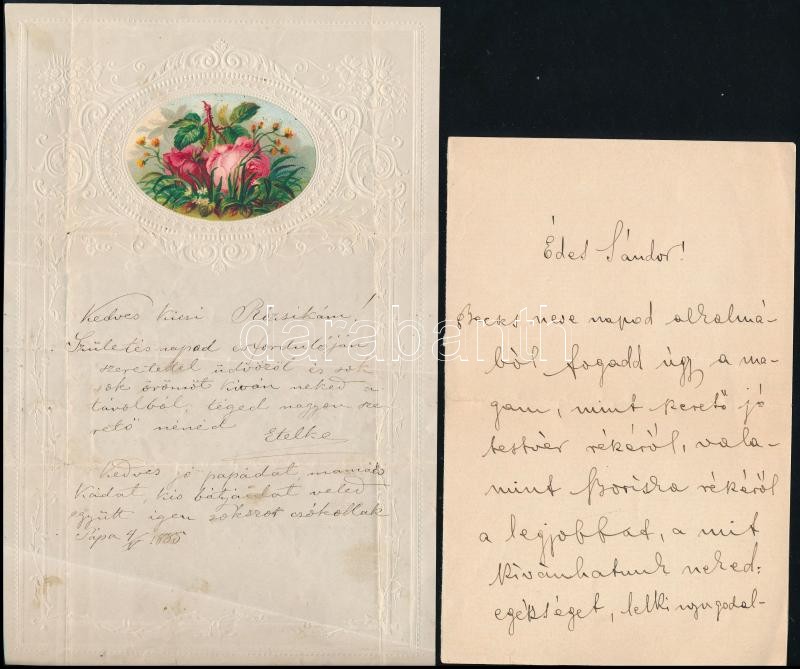 Kedves kicsi Rózsikám!
Születés napod évfordulóján
szeretettel üdvözöl és sok
sok örömöt kiván neked a
távolból, téged nagyon sze-
rető nénéd Etelke
Kedves jó papádat, mamás
kádat, kis bátyáidat veled
együtt igen sokszor csókollak
Pápa 1885
Édes Sándor!
Becses neve napod alkalmá-
ból fogadd úgy a ma-
gam, mint szerető jó
testvér részéről, vala-
mint Boriska részéről
a legjobbat, a mit
kivánhatunk neked:
egésséget, lelki nyugodal-
darabanth